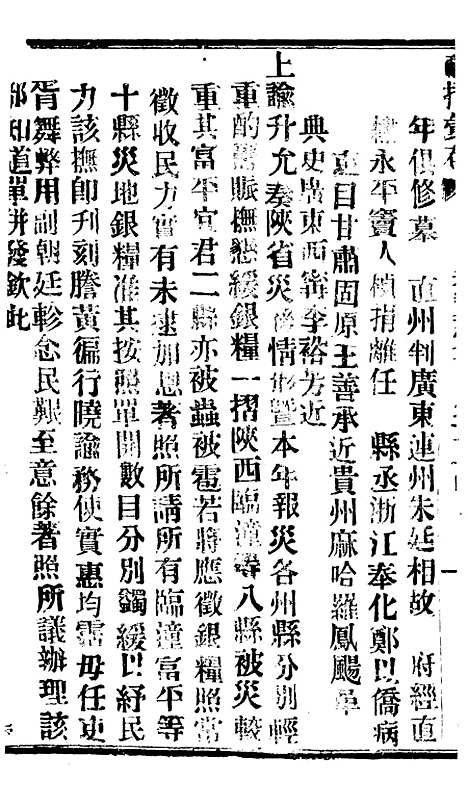 年俱修墓　直州判廣東連州朱廷相故　府經直
永平竇人楨捐離任　縣丞浙江奉化鄭以僑病
目甘肅固原王善承近貴州麻哈羅鳳颺革
典史廣東西寧李裕芳近
上諭升允奏陝省災後情形暨本年報災各州縣分別輕
重酌籌賑撫懇緩銀糧一摺陝西臨潼等八縣被災較
重其富平宜君二縣亦被蟲被雹若將應徵銀糧照常
徵收民力實有未逮加恩著照所請所有臨潼富平等
十縣災地銀糧准其按照單開數目分別蠲緩以紓民
力該撫卽刊刻謄黃徧行曉諭務使實惠均霑毋任吏
胥舞弊用副朝廷軫念民艱至意餘著照所議辦理該
部知道單併發欽此